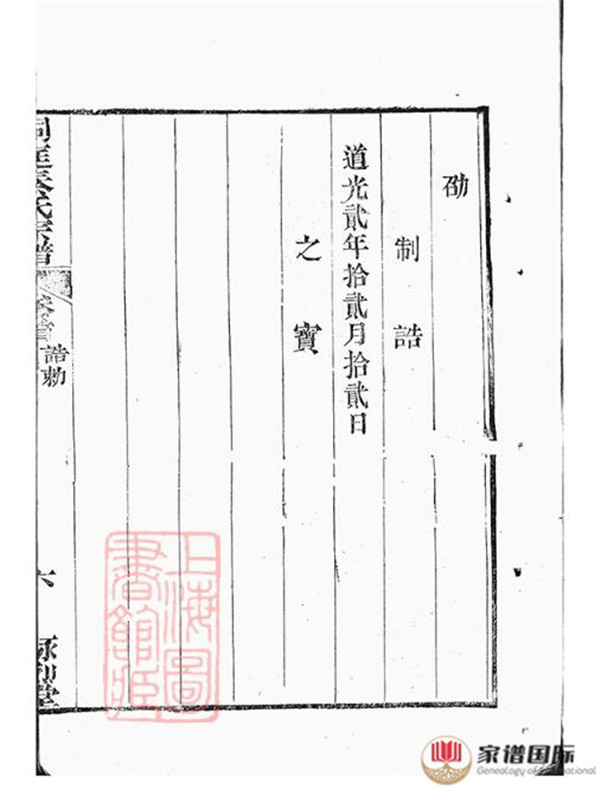 劭
制誥
道光貳年拾貳月拾貳日
之寶
洞庭秦氏宗譜
卷首
誥勅
六
詠烈堂
上海圖
書館藏
家谱国际
Genealogy of International